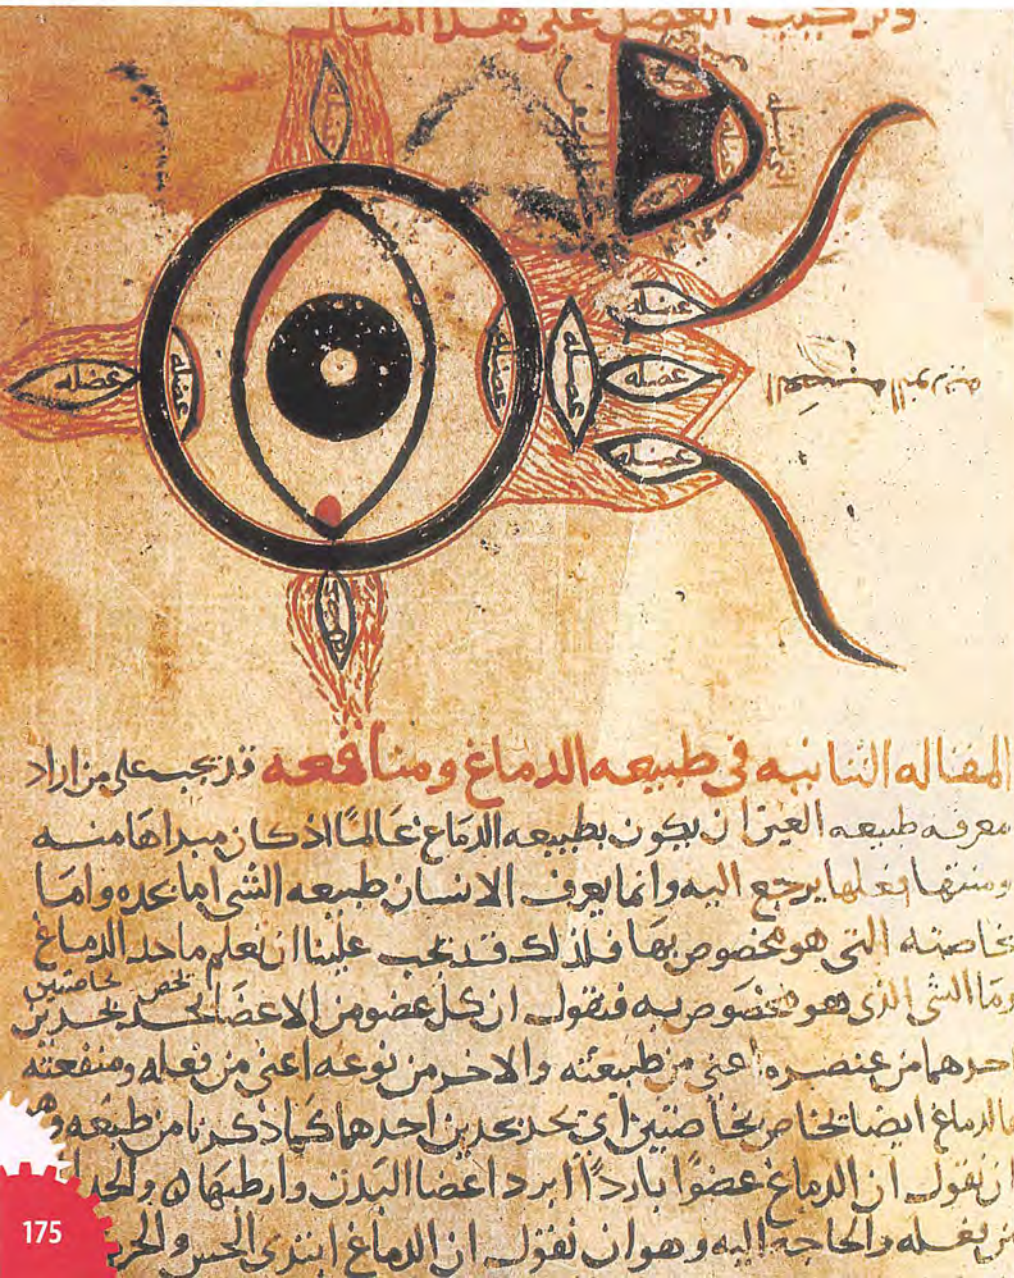 وتركيب العضل على هذا المثال
عضله
عضله
عضله
عضله
عضله
عضله
عضله
عضله
عضله
عضله
العصبه النوريه
المقاله الثانيه في طبيعه الدماغ ومنافعه قد يجب على من اراد
معرفه طبيعه العين ان يكون بطبيعه الدماغ عالمًا اذ كان مبداها منه
ومنتها فعلها يرجع اليه وانما يعرف الانسان طبيعه الشي اما بحده واما
بخاصته التي هو مخصوص بها فلذلك قد يجب علينا ان نعلم ما حد الدماغ
وما الشي الذي هو مخصوص به فنقول ان كل عضو من الاعضا يحد بحدين
يخص بخاصتين
احدهما من عنصره اعني من طبيعته والاخر من نوعه اعني من فعله ومنفعته
فالدماغ ايضا بخاص بخاصتين اي يحد بحدين احدهما كما ذكرنا من طبعه وهو
ان نقول ان الدماغ عضوًا باردًا ابرد اعضا البدن وارطبها والحد
من فعله والحاجه اليه وهو ان نقول ان الدماغ ابتدى الحس والحر
175